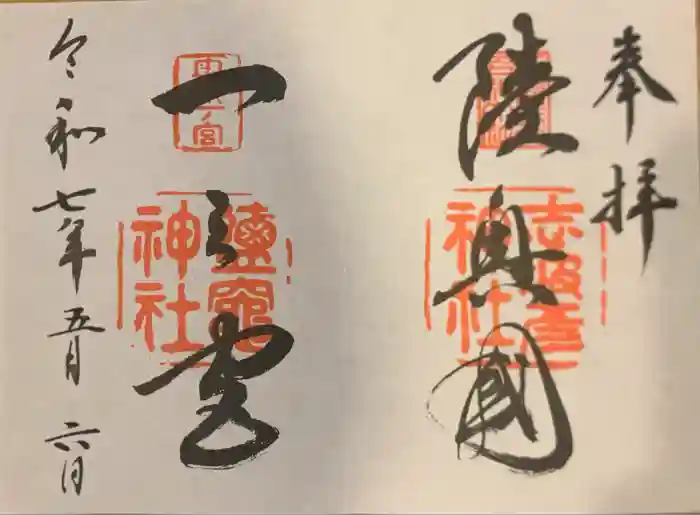 奉拝
陸奥國
志波彦神社
一之宮
鹽竈神社
令和七年五月六日